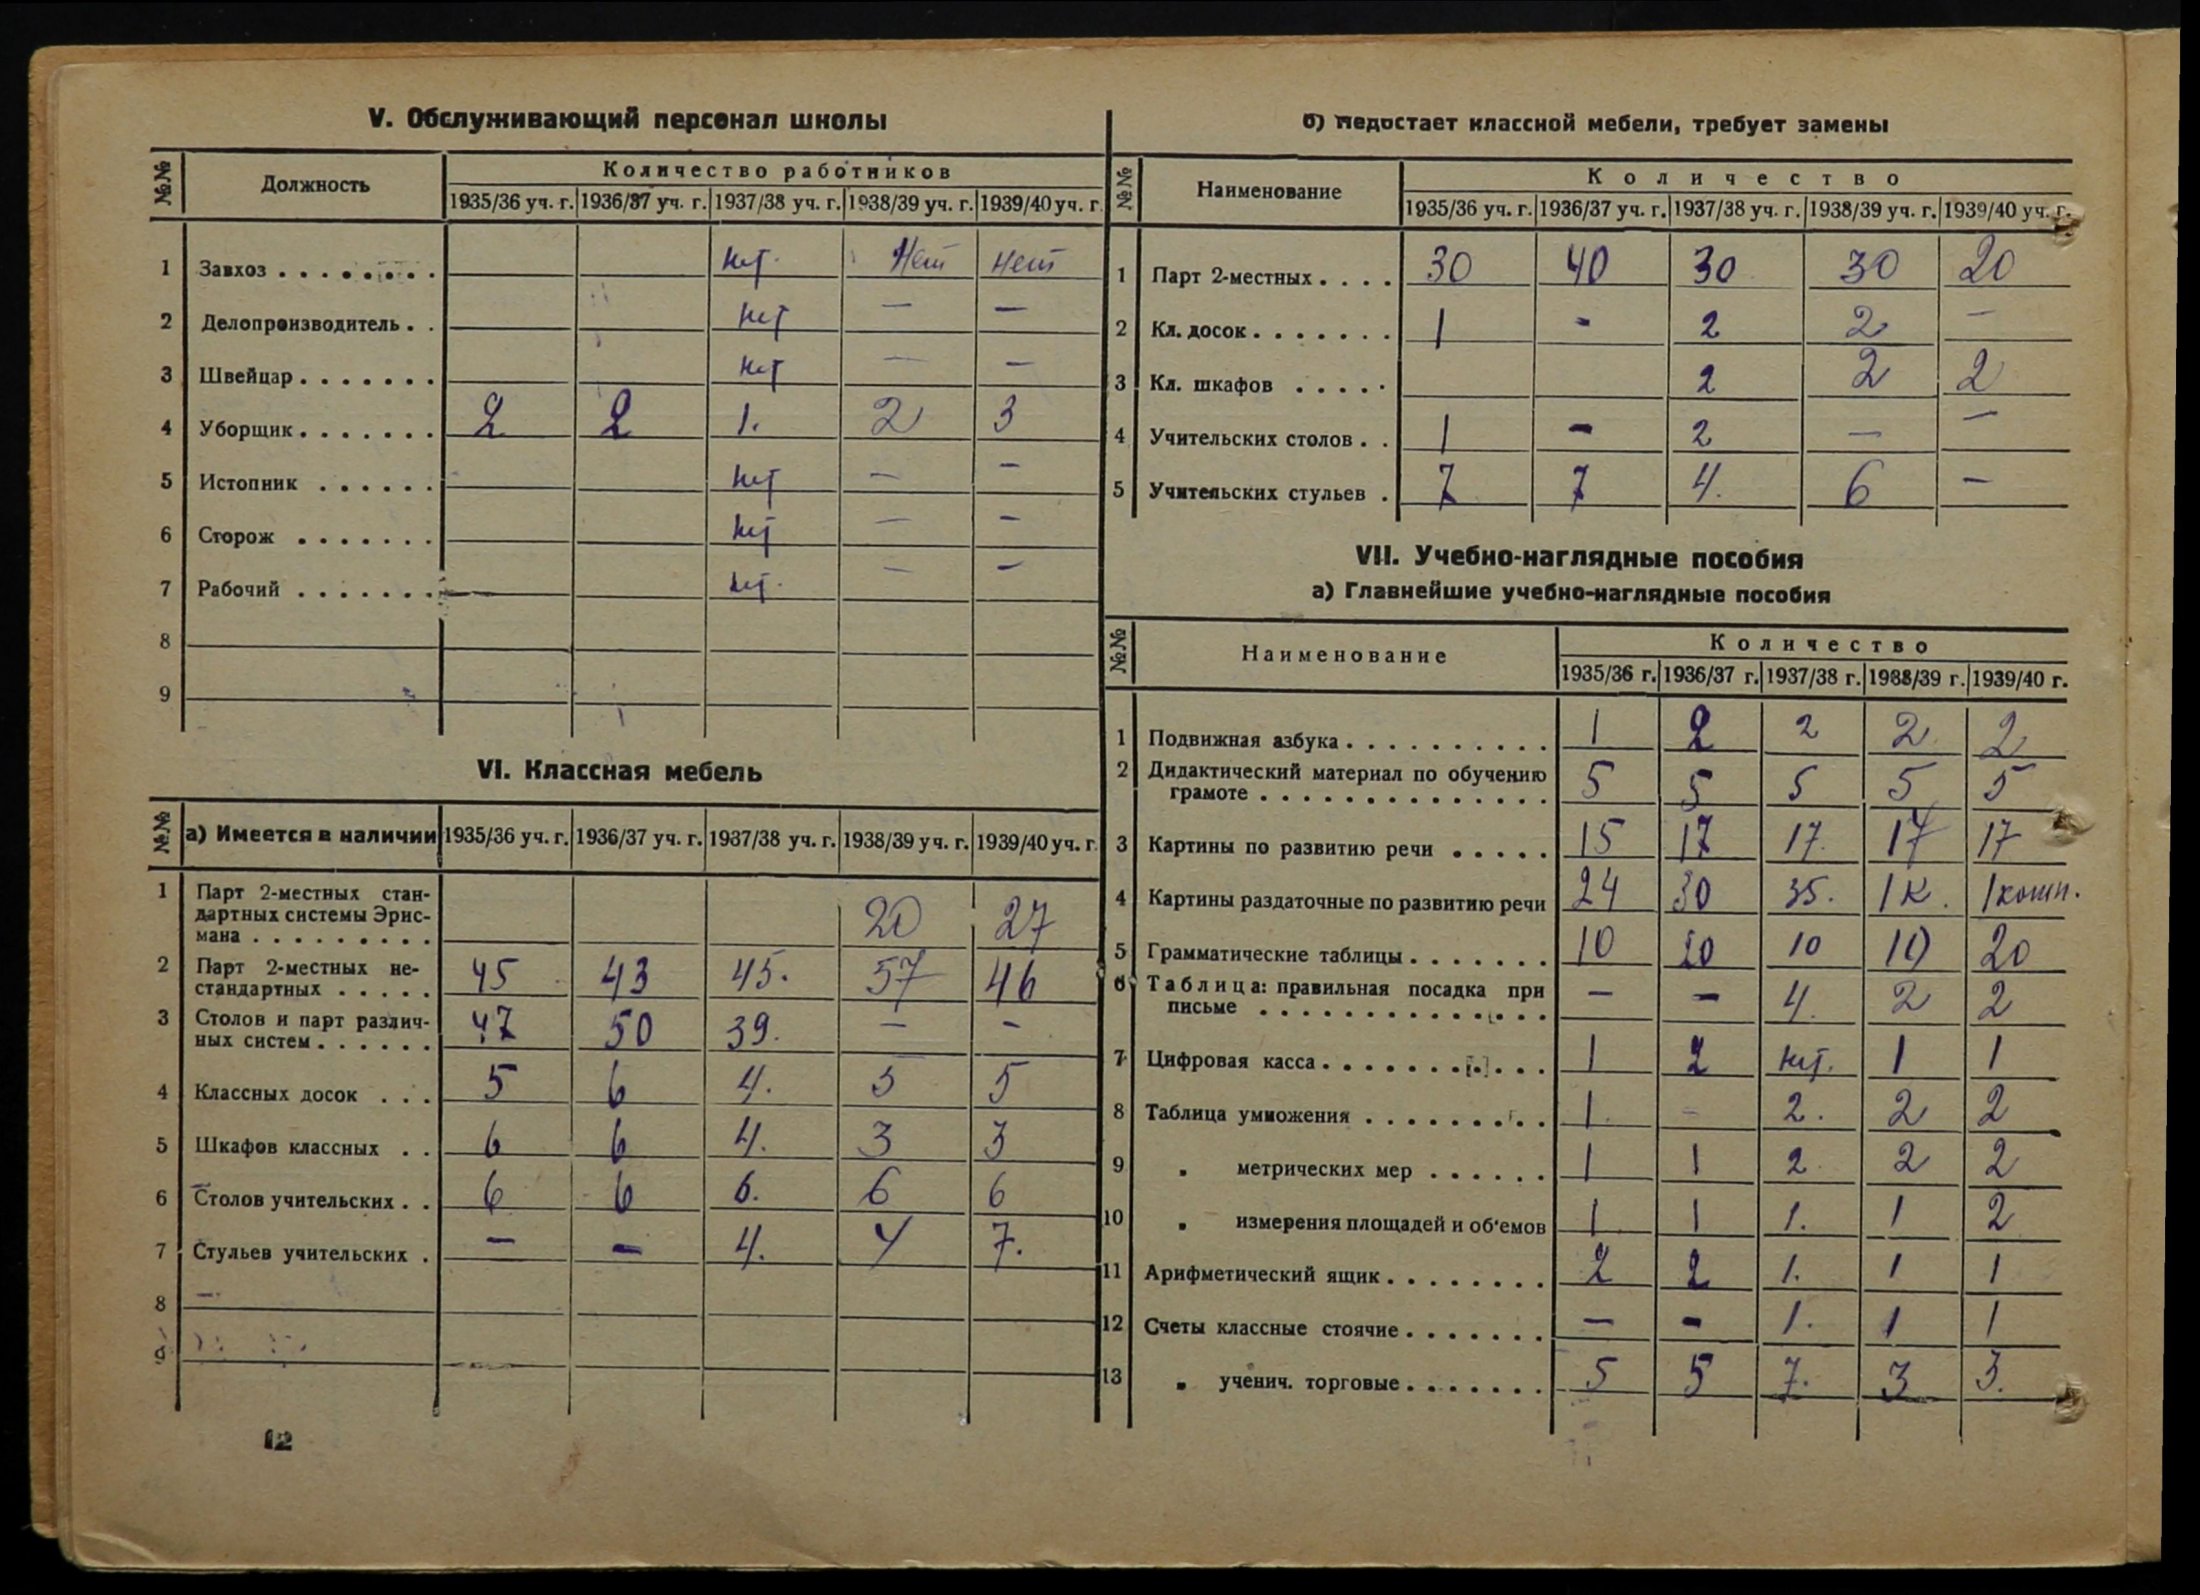 V. Обслуживающий персонал школы
№№ Должность Количество работников
1935/36 уч. г. 1936/37 уч. г. 1937/38 уч. г. 1938/39 уч. г. 1939/40 уч. г.
1 Завхоз . . . . . . . . . нет. Нет нет
2 Делопроизводитель . . нет — —
3 Швейцар . . . . . . . нет — —
4 Уборщик . . . . . . . 2 2 1. 2 3
5 Истопник . . . . . . нет — —
6 Сторож . . . . . . . нет — —
7 Рабочий . . . . . . . нет. — —
8
9
VI. Классная мебель
№№ а) Имеется в наличии 1935/36 уч. г. 1936/37 уч. г. 1937/38 уч. г. 1938/39 уч. г. 1939/40 уч. г.
1 Парт 2-местных стан-
дартных системы Эрис-
мана . . . . . . . . . 20 27
2 Парт 2-местных не-
стандартных . . . . . 45 43 45. 57 46
3 Столов и парт различ-
ных систем . . . . . . 47 50 39. — —
4 Классных досок . . . 5 6 4. 5 5
5 Шкафов классных . . 6 6 4. 3 3
6 Столов учительских . . 6 6 6. 6 6
7 Стульев учительских . — — 4. 4 7.
8
9
12
б) Недостает классной мебели, требует замены
№№ Наименование Количество
1935/36 уч. г. 1936/37 уч. г. 1937/38 уч. г. 1938/39 уч. г. 1939/40 уч. г.
1 Парт 2-местных . . . . 30 40 30 30 20
2 Кл. досок . . . . . . . 1 - 2 2 —
3 Кл. шкафов . . . . . 2 2 2
4 Учительских столов . . 1 - 2 — —
5 Учительских стульев . 7 7 4. 6 —
VII. Учебно-наглядные пособия
а) Главнейшие учебно-наглядные пособия
№№ Наименование Количество
1935/36 г. 1936/37 г. 1937/38 г. 1988/39 г. 1939/40 г.
1 Подвижная азбука . . . . . . . . . . 1 2 2 2 2
2 Дидактический материал по обучению
грамоте . . . . . . . . . . . . . . 5 5 5 5 5
3 Картины по развитию речи . . . . . 15 17 17. 17 17
4 Картины раздаточные по развитию речи 24 30 35. 1 к. 1 комп.
5 Грамматические таблицы . . . . . . . 10 10 10 10 20
6 Таблица: правильная посадка при
письме . . . . . . . . . . . . . . — — 4. 2 2
7 Цифровая касса . . . . . . . . . . . 1 2 нет. 1 1
8 Таблица умножения . . . . . . . . . 1. - 2. 2 2
9 „ метрических мер . . . . . . 1 1 2 2 2
10 „ измерения площадей и об'емов 1 1 1. 1 2
11 Арифметический ящик . . . . . . . . 2 2 1. 1 1
12 Счеты классные стоячие . . . . . . . — - 1. 1 1
13 „ ученич. торговые . . . . . . . 5 5 7. 3 3.